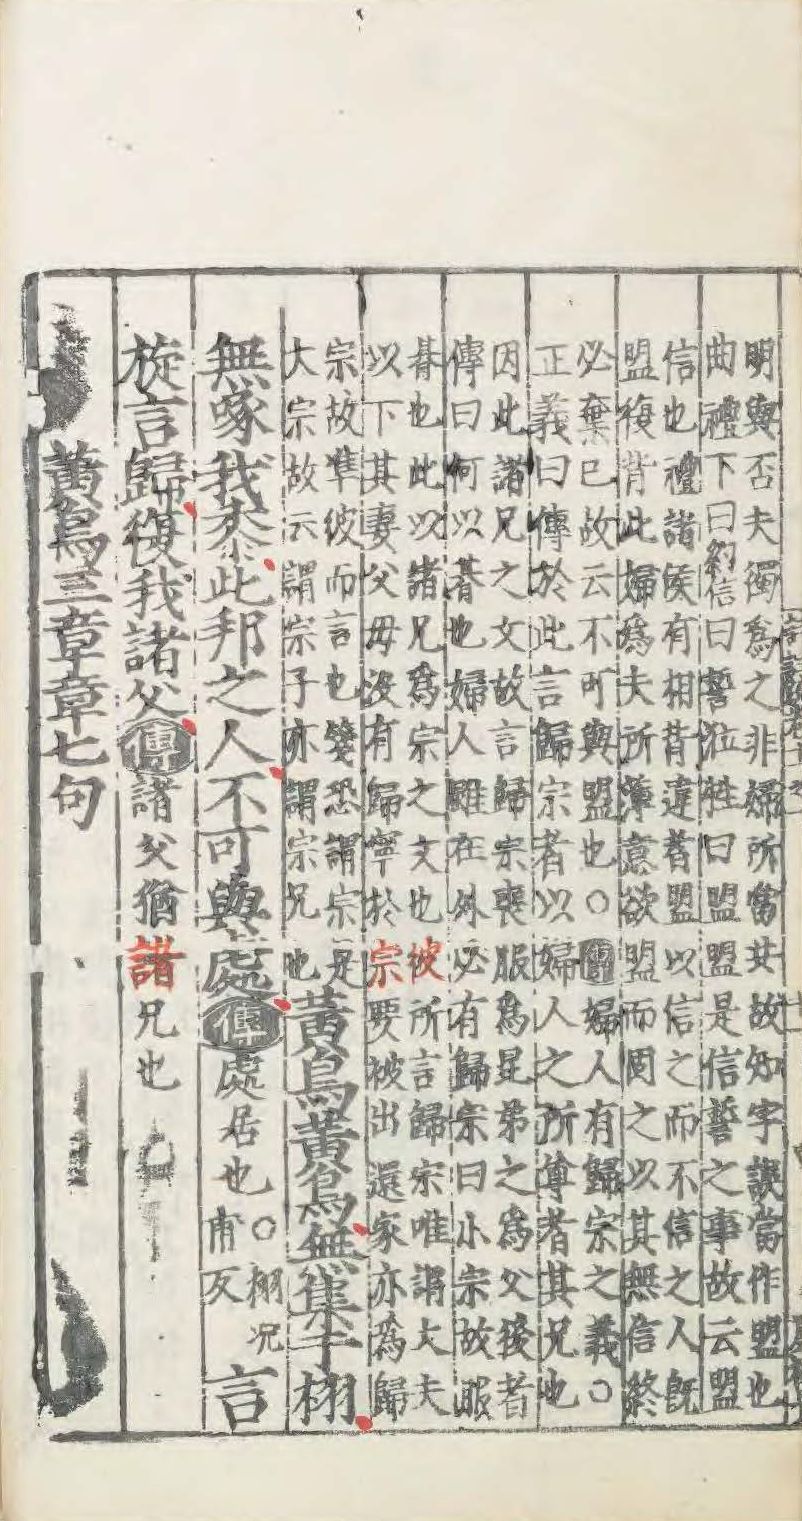 明與否夫獨為之非婦所當共故知字誤當作盟也
曲禮下曰約信曰誓涖牲曰盟盟是信誓之事故云盟
信也禮諸侯有相背違者盟以信之而不信之人既
盟復背此婦為夫所薄意欲盟而固之以其無信終
必棄已故云不可與盟也○傳婦人有歸宗之義○
正義曰傳於此言歸宗者以婦人之所尊者其兄也
因此諸兄之文故言歸宗喪服為昆弟之為父後者
傳曰何以朞也婦人雖在外必有歸宗曰小宗故服
朞也此以諸兄為宗之文也彼所言歸宗唯謂大夫
以下其妻父母沒有歸寧於宗要被出還家亦為歸
宗故準彼而言也箋恐謂宗是
大宗故云謂宗子亦謂宗兄也
黃鳥黃鳥無集于栩
無啄我黍此邦之人不可與處傳處居也○栩况甫反言
旋言歸復我諸父傳諸父猶諸兄也
黃鳥三章章七句